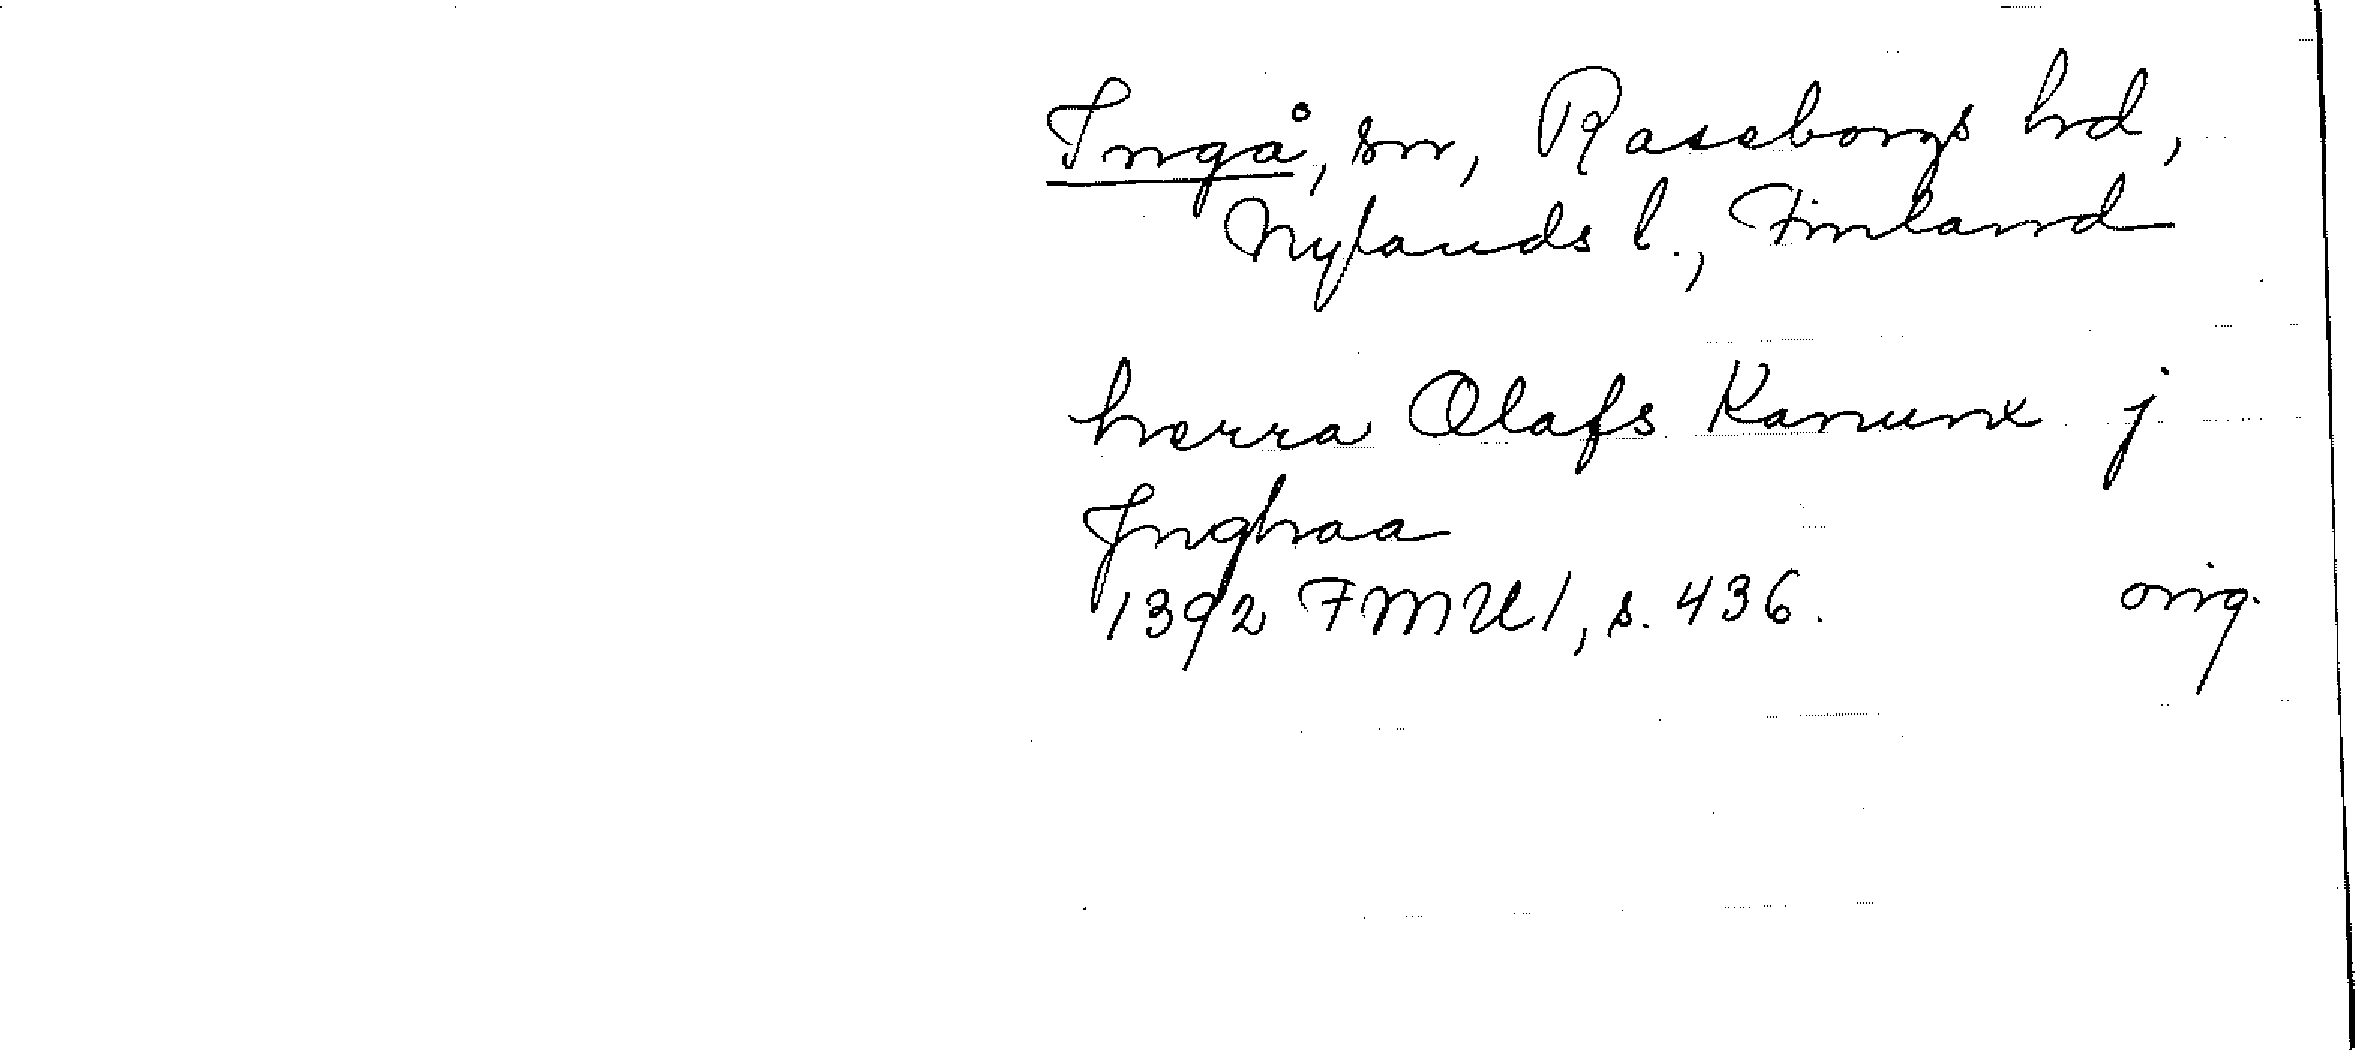 Ingå, sn, Raseborgs hd,
Nylands l., Finland
herra Olafs Kanunx j
Jnghaa
1392 FMU 1, s. 436. orig.